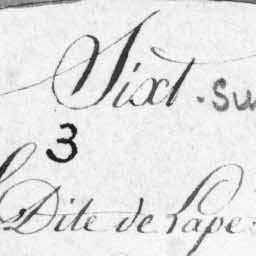 Sixt - su
3
Dite de Lape